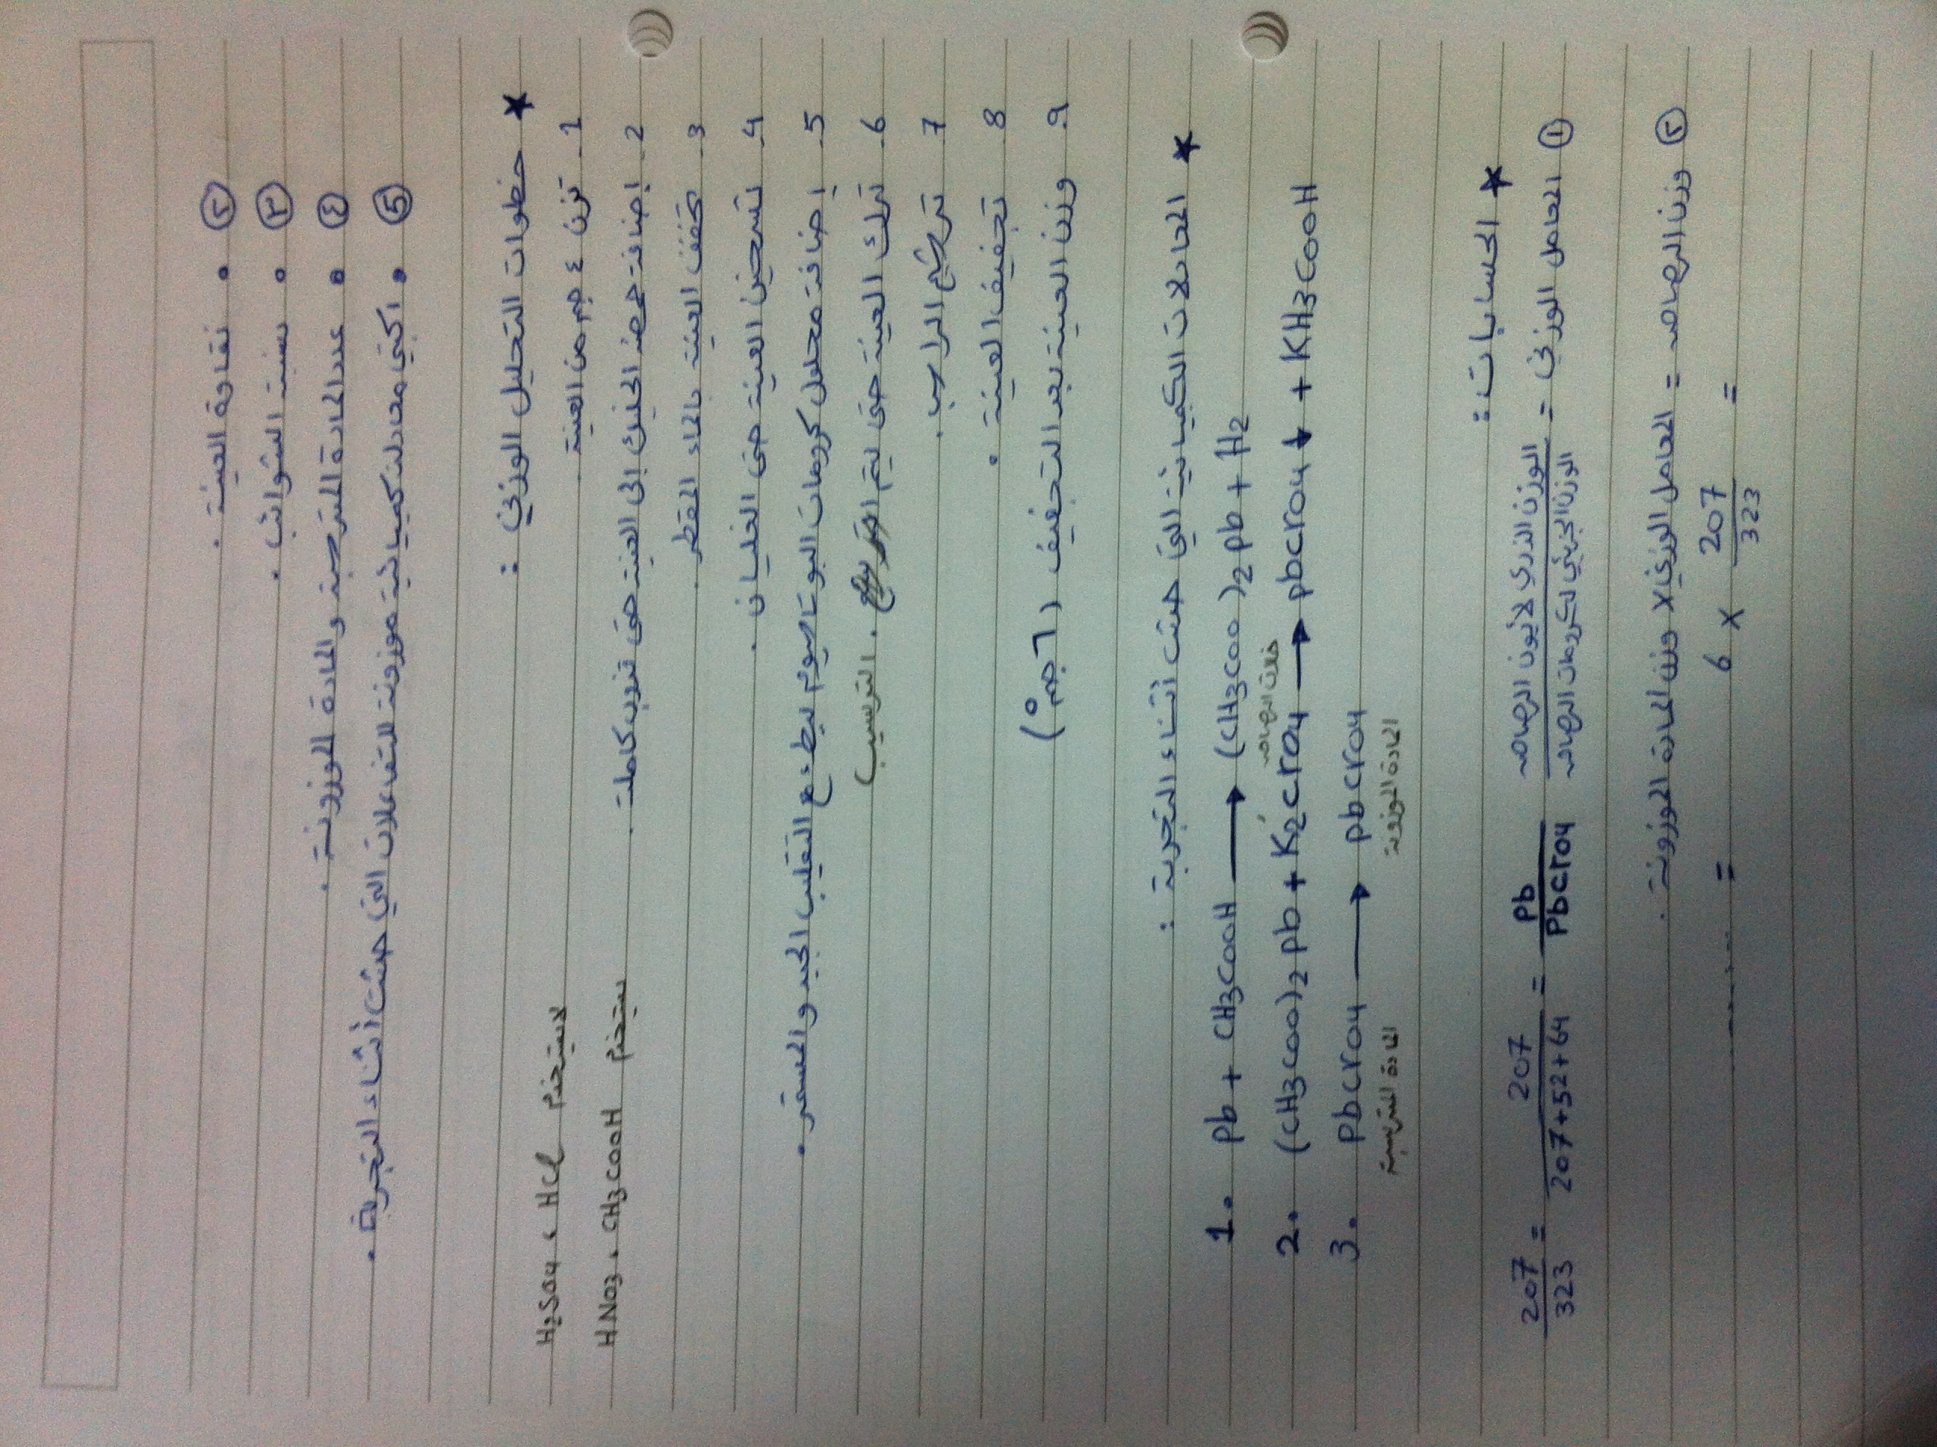 ② • نقاوة العينة .
③ • نسبة الشوائب .
④ • عدد المادة المترسبة والمادة الموزونة .
⑤ • اكتبي معادلة كيميائية موزونة للتفاعلات التي حدثت أثناء التجربة .
★ خطوات التحليل الوزني :
1 . تزن ٤ جم من العينة . لا يستخدم H2SO4 ، HCl
2 . إضافة حمض الخليك إلى العينة حتى تذوب كاملة . يستخدم HNO3 ، CH3COOH
3 . تخفف العينة بالماء المقطر .
4 . تسخين العينة حتى الغليان .
5 . إضافة محلول كرومات البوتاسيوم ببطء مع التقليب الجيد والمستمر .
6 . تترك العينة حتى ليتم . الترسيب
7 . ترشيح الراسب .
8 . تجفيف العينة .
9 . وزن العينة بعد التجفيف (٦ جم)
★ المعادلات الكيميائية التي حدثت أثناء التجربة :
1. Pb + CH3COOH → (CH3COO)2 Pb + H2
خلات الرصاص
2. (CH3COO)2 Pb + K2CrO4 → PbCrO4 ↓ + KH3COOH
3. PbCrO4 → PbCrO4
المادة المترسبة المادة الموزونة
★ الحسابات :
① المعامل الوزني = الوزن الذري لأيون الرصاص / الوزن الجزيئي لكرومات الرصاص = Pb / PbCrO4 = 207 / 207+52+64 = 207 / 323
② وزن الرصاص = المعامل الوزني × وزن المادة الموزونة .
= 207 / 323 × 6 = ......